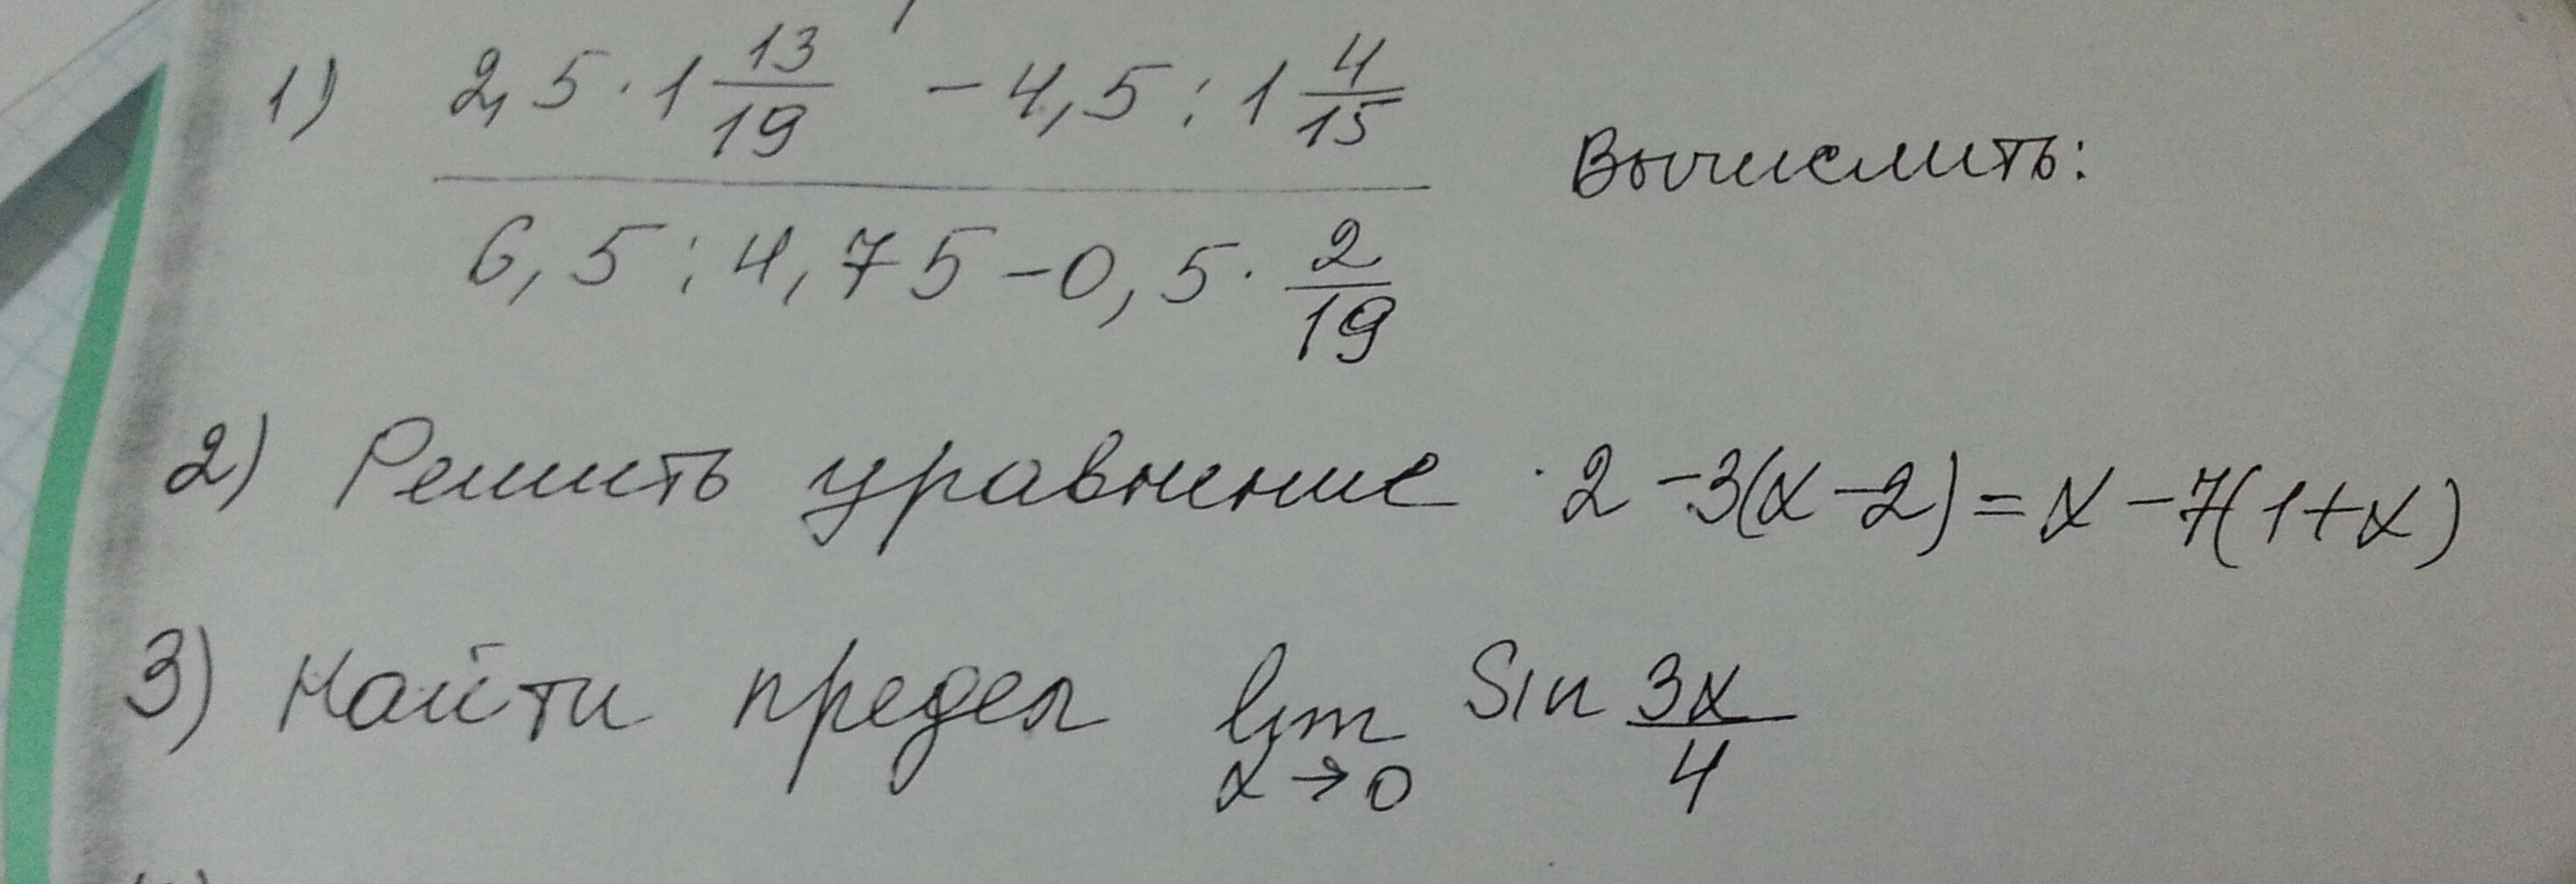 1) (2,5 · 1 13/19 − 4,5 : 1 4/15) / (6,5 : 4,75 − 0,5 · 2/19) Вычислить:
2) Решить уравнение · 2 − 3(x − 2) = x − 7(1 + x)
3) Найти предел lim x→0 Sin 3x/4